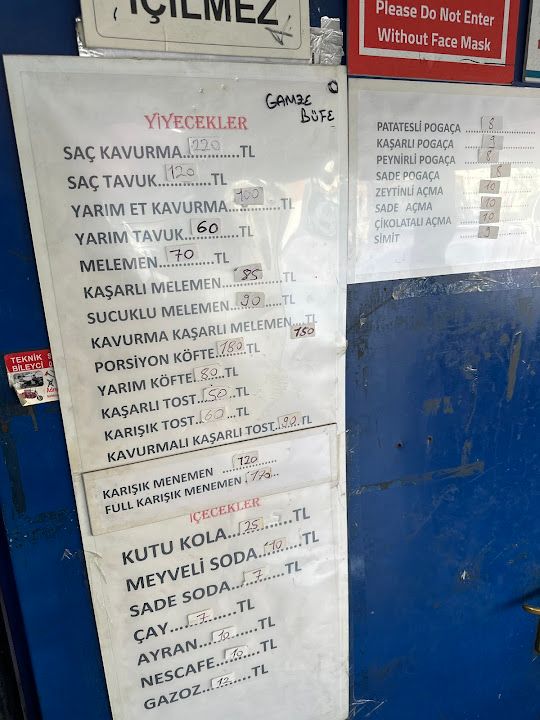 İÇİLMEZ
Please Do Not Enter
Without Face Mask
GAMZE
BÜFE
YİYECEKLER
SAÇ KAVURMA...220............TL
SAÇ TAVUK...120............TL
YARIM ET KAVURMA...100............TL
YARIM TAVUK...60............TL
MELEMEN...70............TL
KAŞARLI MELEMEN...85......TL
SUCUKLU MELEMEN...90......TL
KAVURMA KAŞARLI MELEMEN....TL
150
PORSİYON KÖFTE...180....TL
YARIM KÖFTE...80....TL
KAŞARLI TOST...50....TL
KARIŞIK TOST...60...TL
KAVURMALI KAŞARLI TOST...90.TL
KARIŞIK MENEMEN 120 ............
FULL KARIŞIK MENEMEN 170...
İÇECEKLER
KUTU KOLA...25......TL
MEYVELİ SODA...10......TL
SADE SODA...7......TL
ÇAY......7......TL
AYRAN...10......TL
NESCAFE...10......TL
GAZOZ...12......TL
PATATESLİ POĞAÇA ...8............
KAŞARLI POĞAÇA ...9............
PEYNİRLİ POĞAÇA ...8............
SADE POGAÇA ...8......
ZEYTİNLİ AÇMA ...10............
SADE AÇMA ...10............
ÇİKOLATALI AÇMA ...10............
SİMİT ...9............
TEKNİK
BİLEYCİ